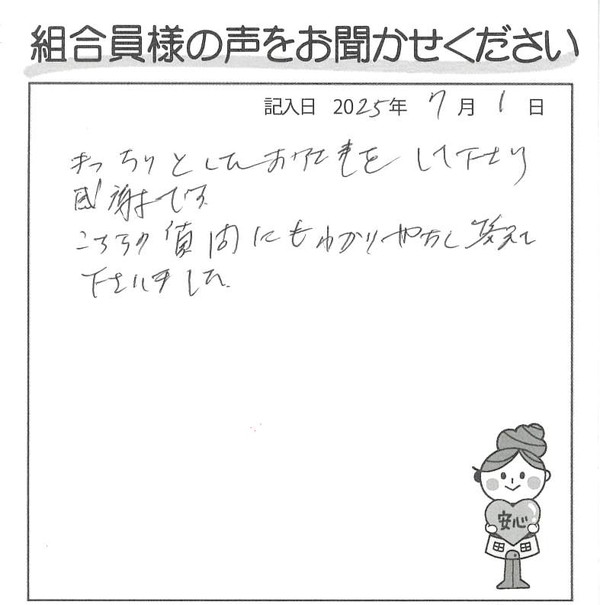 組合員様の声をお聞かせください
記入日 2025年 7月 1日
きっちりとしたお仕事をして下さり
感謝です。
こちらの質問にもわかりやすく答えて
下さいました。
安心